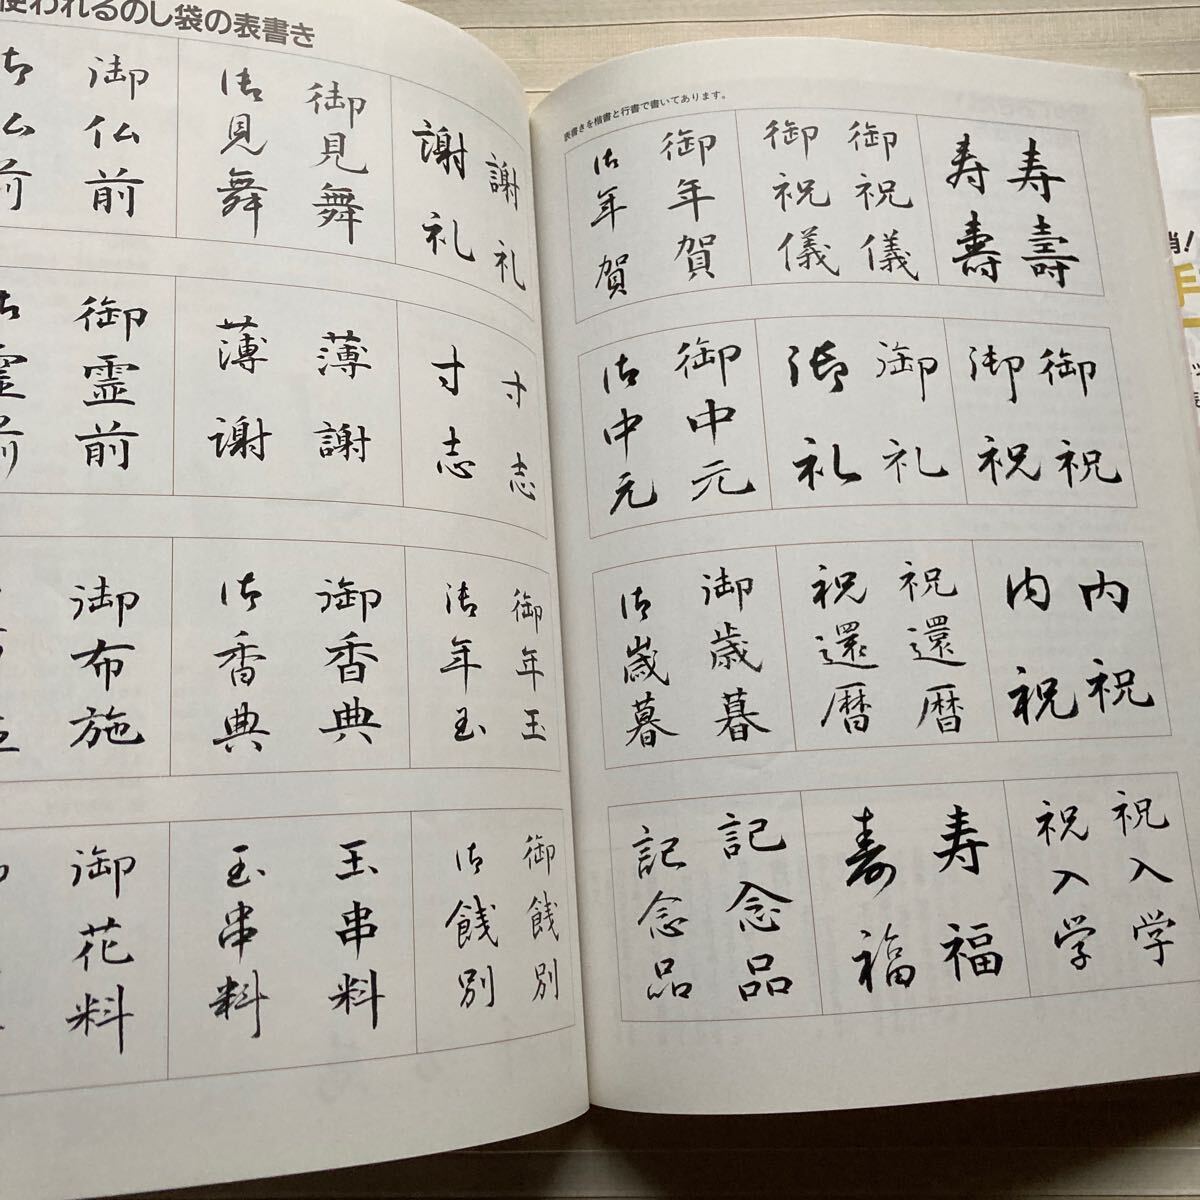 使われるのし袋の表書き
表書きを楷書と行書で書いてあります。
寿 寿
壽 壽
御祝儀 御祝儀
御年賀 御年賀
御祝 御祝
御礼 御礼
御中元 御中元
内祝 内祝
祝還暦 祝還暦
御歳暮 御歳暮
祝入学 祝入学
寿福 寿福
記念品 記念品
謝礼 謝礼
御見舞 御見舞
御仏前 御仏前
寸志 寸志
薄謝 薄謝
御霊前 御霊前
御年玉 御年玉
御香典 御香典
御布施
御餞別 御餞別
玉串料 玉串料
御花料
手